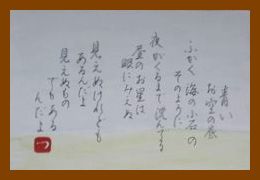 青い
お空の底
ふかく
海の小石の
そのように
夜がくるまで沈んでる
昼のお星は
眼にみえぬ
見えぬけれども
あるんだよ
見えぬもの
でもある
んだよ
つ